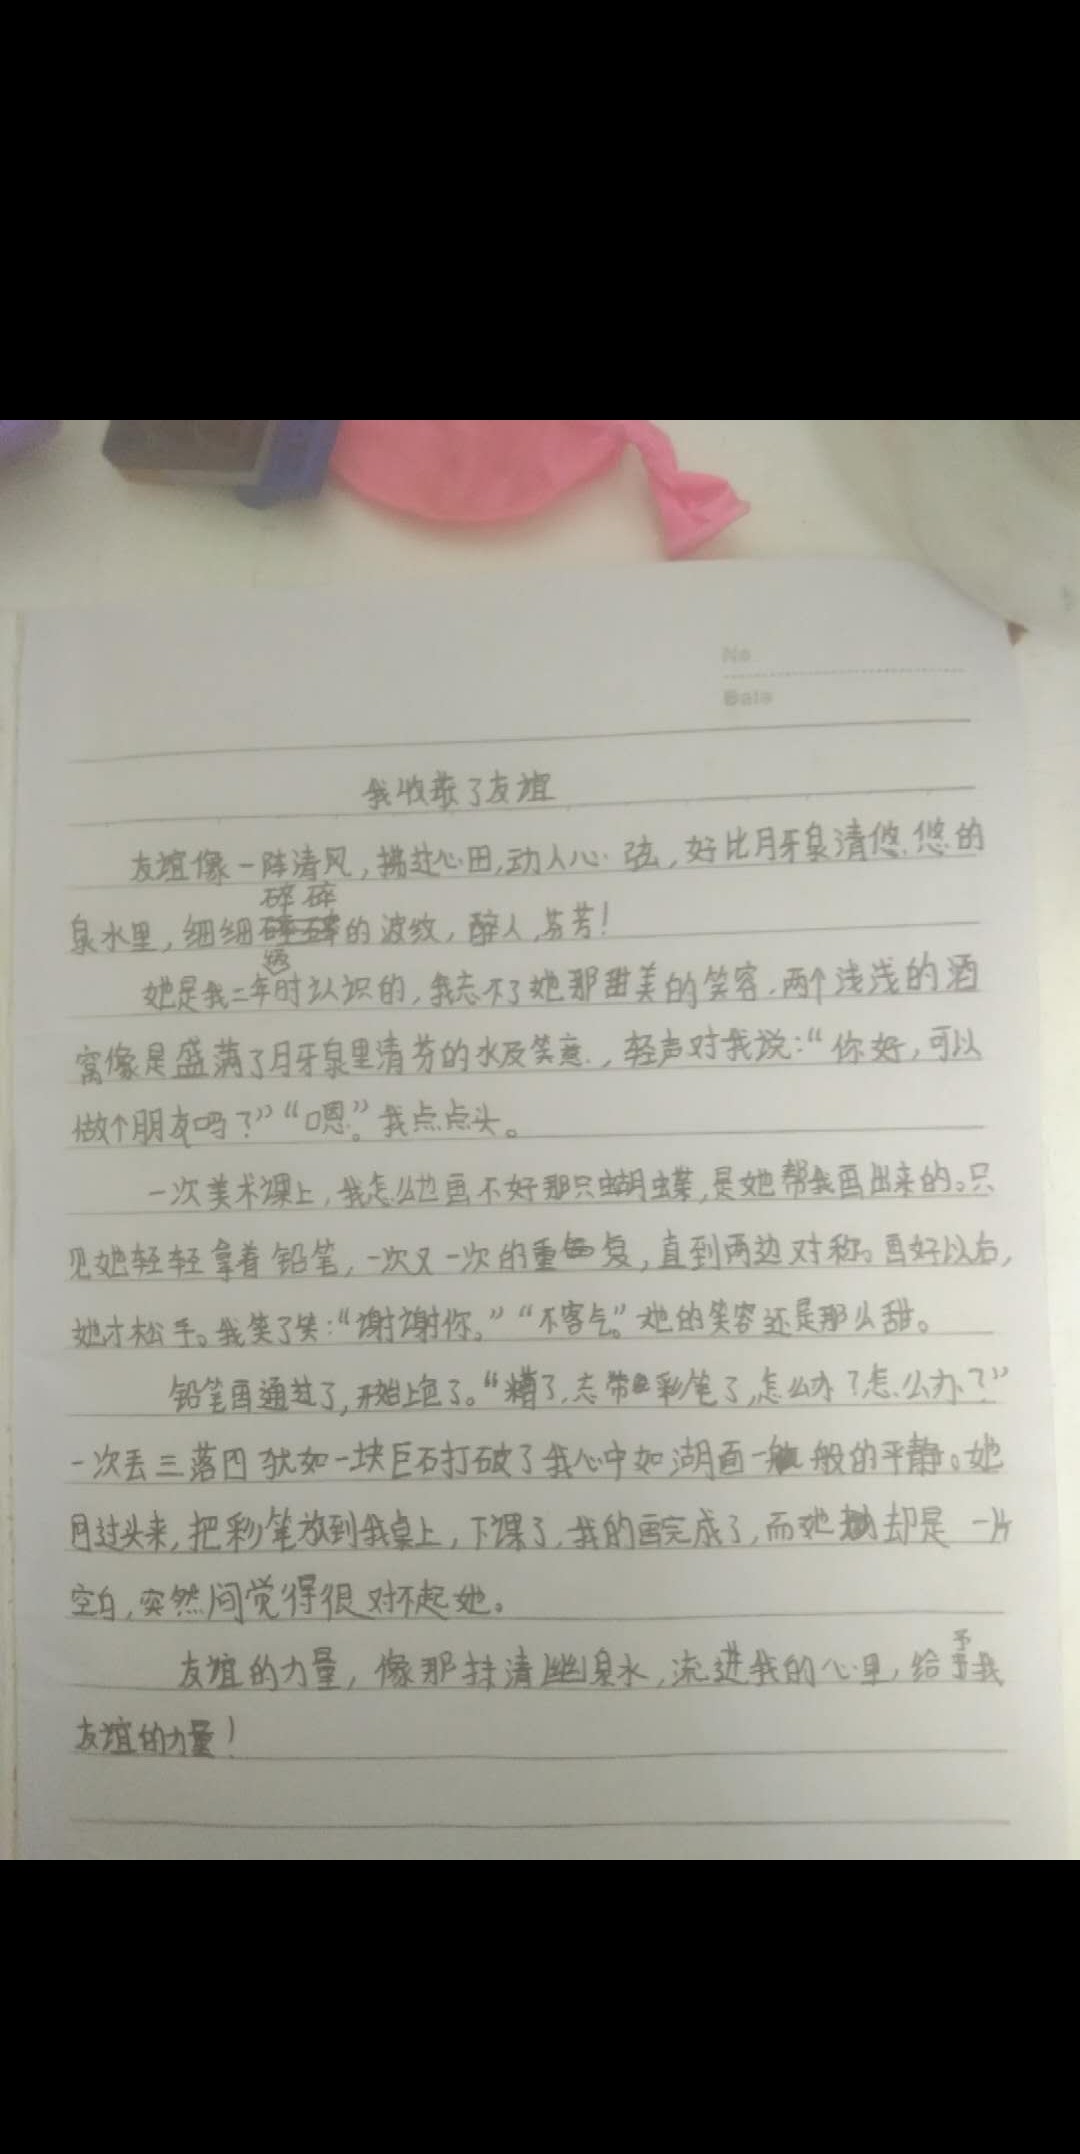 No
Date
我收获了友谊
友谊像一阵清风，拂过心田，动人心弦，好比月牙泉清悠悠的
碎碎
泉水里，细细的波纹，醉人，芬芳！
级
她是我二年时认识的，我忘不了她那甜美的笑容，两个浅浅的酒
窝像是盛满了月牙泉里清芬的水及笑意，轻声对我说：“你好，可以
做个朋友吗？”“嗯。”我点点头。
一次美术课上，我怎么也画不好那只蝴蝶，是她帮我画出来的。只
见她轻轻拿着铅笔，一次又一次的重复，直到两边对称。画好以后，
她才松手。我笑了笑：“谢谢你。”“不客气。”她的笑容还是那么甜。
铅笔画通过了，开始上色了。“糟了，忘带彩笔了，怎么办？怎么办？”
一次丢三落四犹如一块巨石打破了我心中如湖面一般的平静。她
回过头来，把彩笔放到我桌上，下课了，我的画完成了，而她却是一片
空白，突然间觉得很对不起她。
予
友谊的力量，像那抹清幽泉水，流进我的心里，给我
友谊的力量！